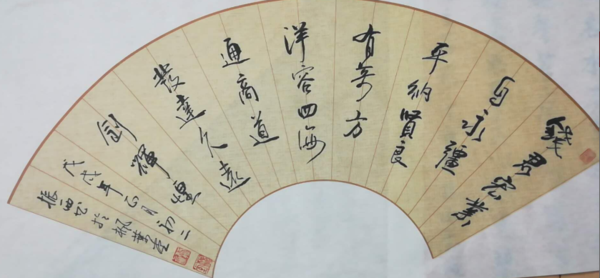 錢君宏業
自永疆
平納賢良
有萬方
洋容四海
通商道
發達久遠
創輝煌
戊戌年正月初二
振西書於楓葉堂